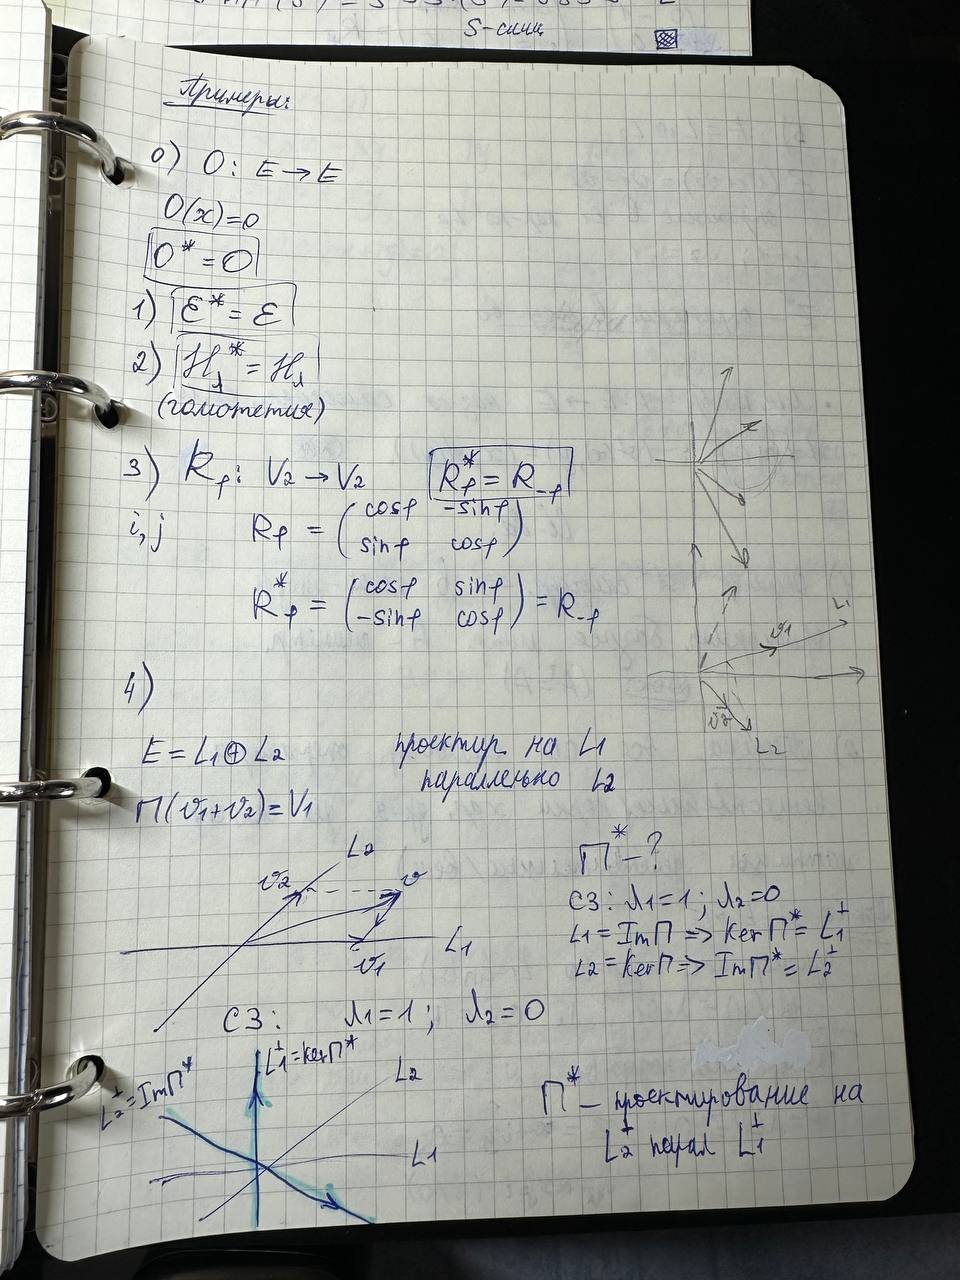 S-симм
Примеры:
0) O: E → E
O(x)=0
O* = O
1) Ɛ* = Ɛ
2) H_λ* = H_λ
(гомотетия)
3) R_φ: V₂ → V₂ R_φ* = R_-φ
i, j R_φ = (cosφ -sinφ
sinφ cosφ)
R_φ* = (cosφ sinφ
-sinφ cosφ) = R_-φ
L₁
v₁
v₂
L₂
4)
E = L₁ ⊕ L₂ проектир. на L₁
параллельно L₂
П(v₁+v₂)=V₁
L₂
v₂
v
L₁
v₁
П* - ?
СЗ: λ₁=1; λ₂=0
L₁ = ImП ⇒ kerП* = L₁^⊥
L₂ = kerП ⇒ ImП* = L₂^⊥
СЗ: λ₁=1; λ₂=0
L₂^⊥=ImП*
L₁^⊥=kerП*
L₂
L₁
П* - проектирование на
L₂^⊥ парал L₁^⊥